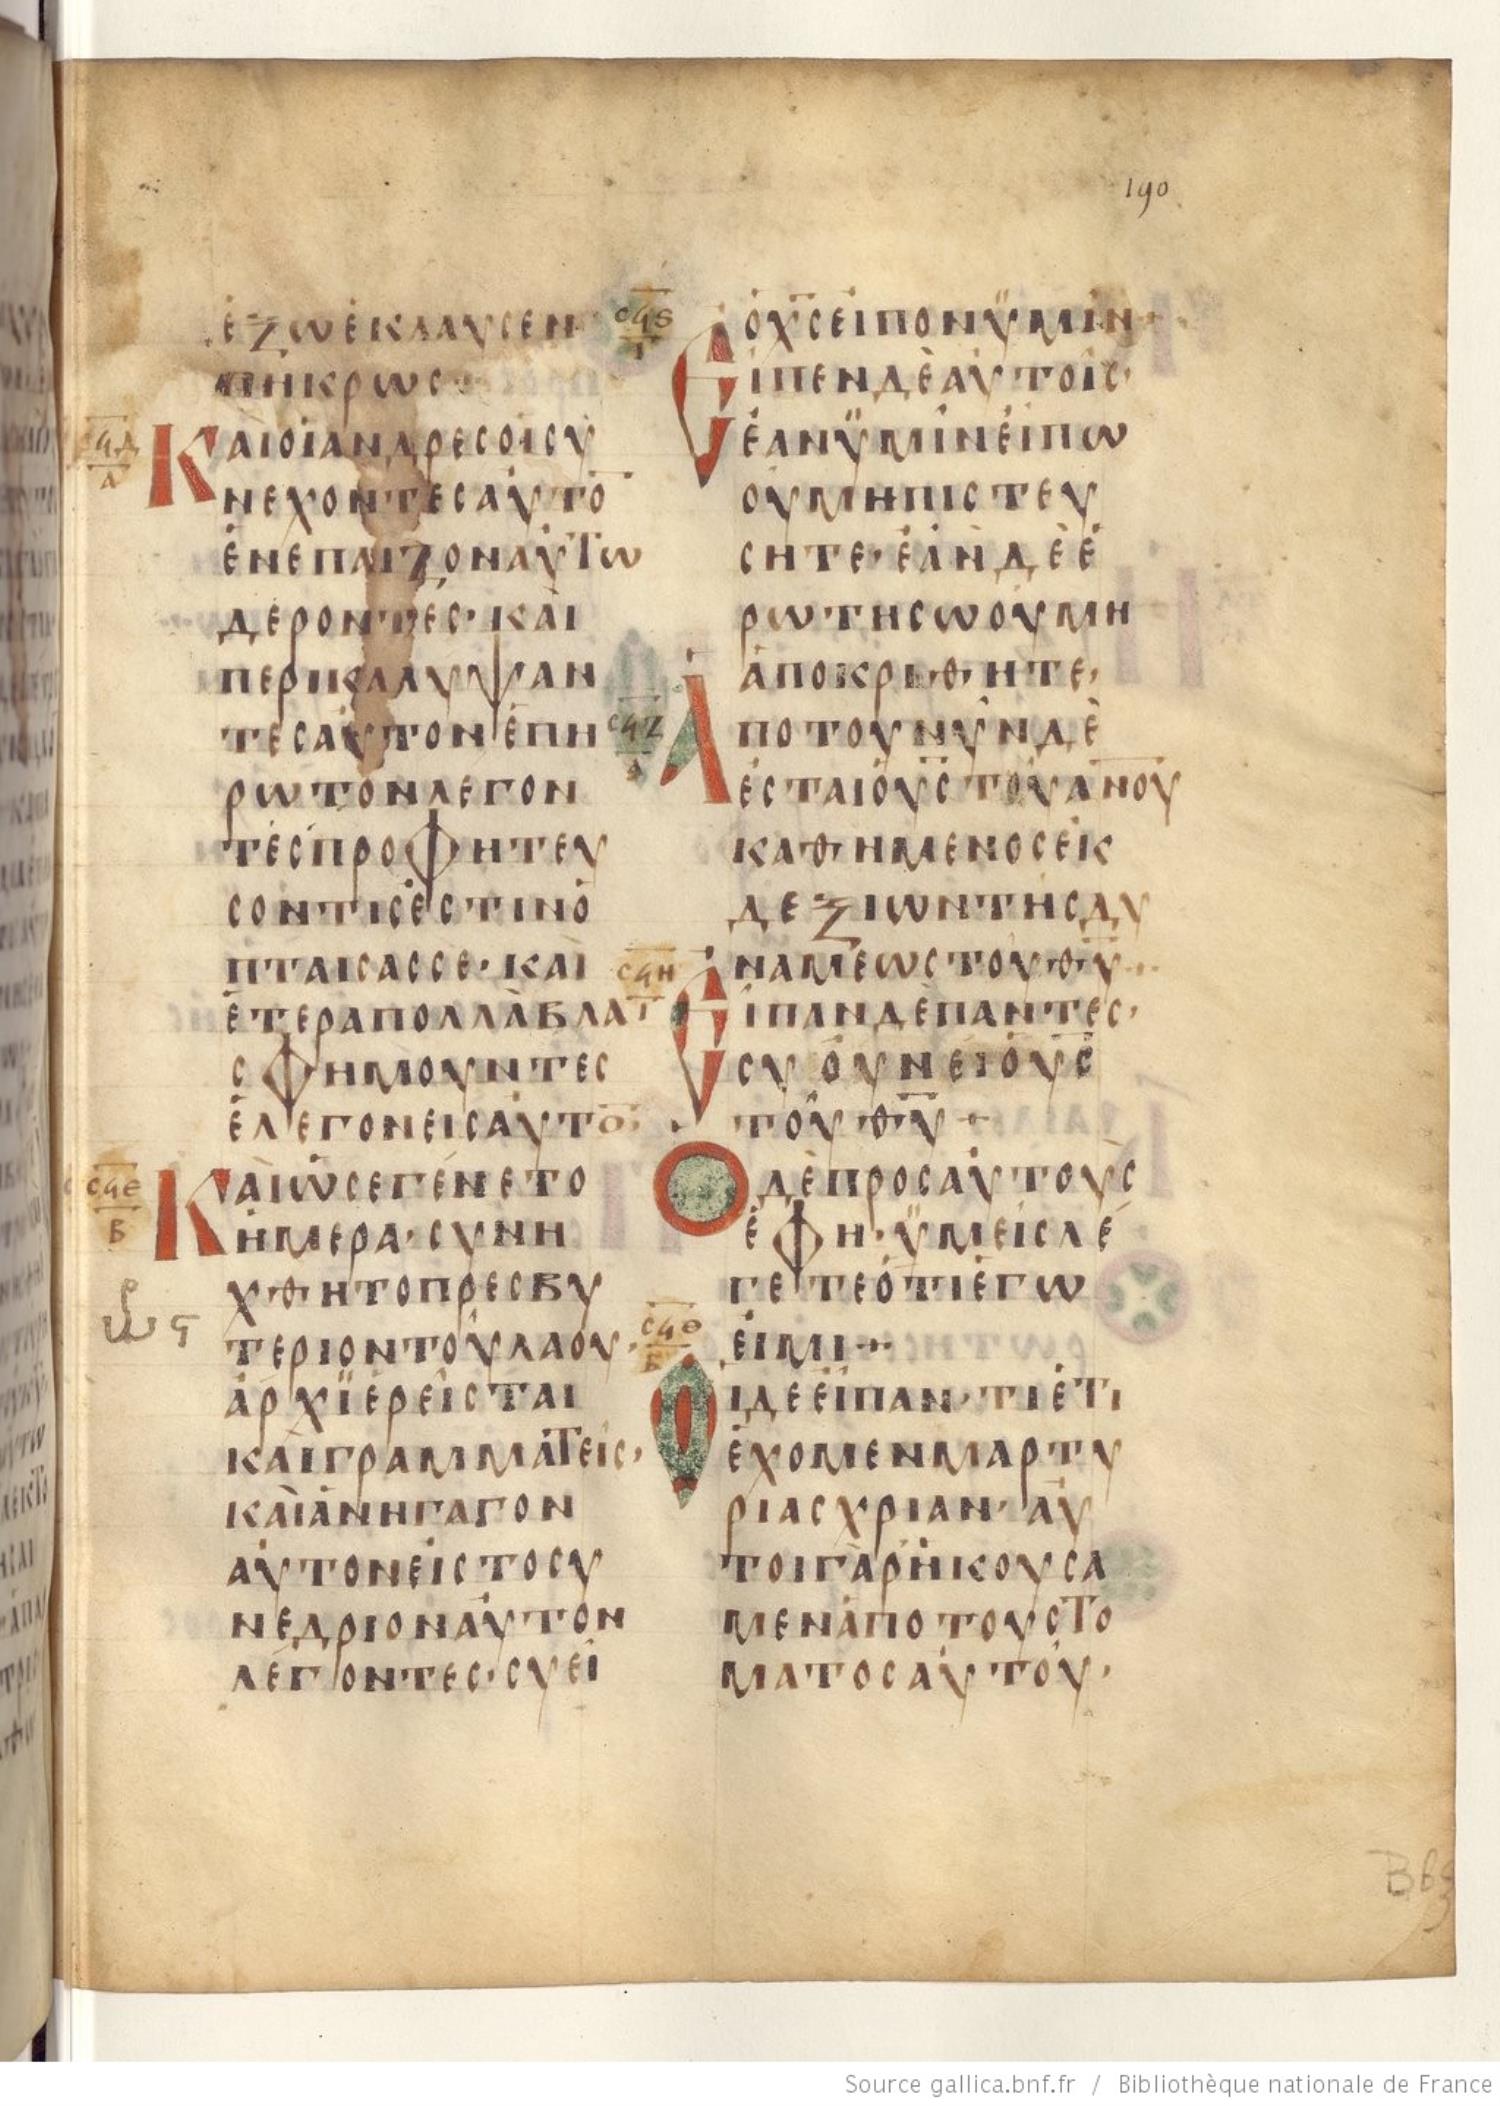 190
ἐξωἐκλαυσεν
πικρως
σϟδ
α
Καὶοἱανδρεσοἱσυ
νεχοντεσαὐτο̅
ἐνεπαιζοναὐτω
δέροντες·καὶ
περικαλυψαν
τεσαὐτονἐπη
ρωτονλέγον
τεςπροφητευ
σοντισἐστινὁ
πταισασσε·καὶ
ἑτεραπολλὰβλα
σφημουντεσ
ἐλεγονεισαυτο̅
σϟε
β
Καὶὡσεγένετο
ἡμερα·συνη
χθητοπρεσβυ
τεριοντοῦλαου·
ἀρχϊερεῖσται
καὶγραμματεῖς·
καὶἀνηγαγον
αὐτονεἰστοσυ
νεδριοναὐτον
λέγοντεσ·συεἰ
σϟς
ι
ὁχ̅σεἰπονϋμῖν
Εἰπενδὲαὐτοῖς·
ἐανϋμῖνεἰπω
οὐμηπιστευ
σητε·ἐὰνδὲἐ
ρωτησωοὐμη
ἀποκριθητε·
σϟζ
Ἀποτουνῦνδὲ
ἐσταιὁυ̅ςτοῦα̅νου
καθημενοσἐκ
δεξιωντῆσδυ
ναμεωστουθ̅υ
σϟη
ι
Εἰπανδὲπαντες·
συοὐνεἰὁυ̅ς
τοῦθ̅υ
Οδὲπροσαὐτους
ἐφη·ϋμεῖσλέ
γετεὁτιἐγω
εἰμι
σϟθ
β
Οιδεεἶπαν·τιἐτι
ἐχομενμαρτυ
ριασχριαν·αὐ
τοιγὰρἠκουσα
μενἀποτουστο
ματοσαὐτοῦ·
Source gallica.bnf.fr / Bibliothèque nationale de France